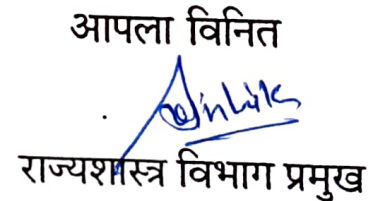 आपला विनित
राज्यशास्त्र विभाग प्रमुख